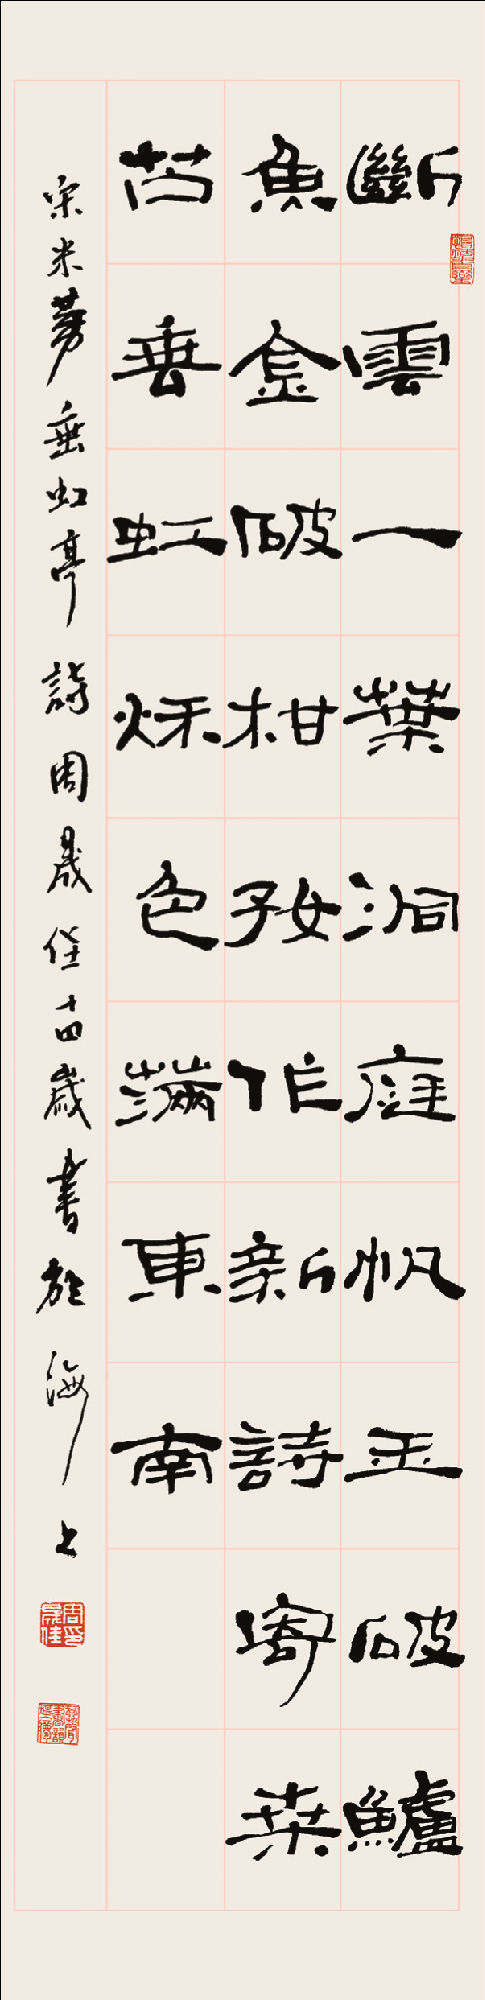 斷雲一葉洞庭帆玉破鱸
魚金破柑好作新詩寄桑
苧垂虹秌色滿東南
宋米芾垂虹亭詩周晟佳十四歲書於海上
周晟佳印